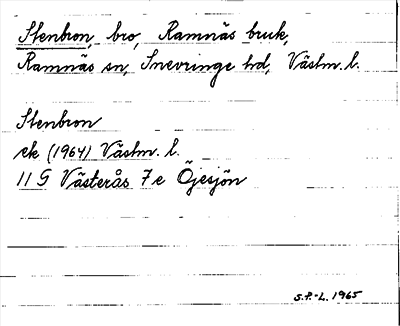 Stenbron, bro, Ramnäs bruk,
Ramnäs sn, Snevringe hd, Västm. l.
Stenbron
ek (1964) Västm. l.
11 G Västerås 7 e Öjesjön
S.P.-L. 1965